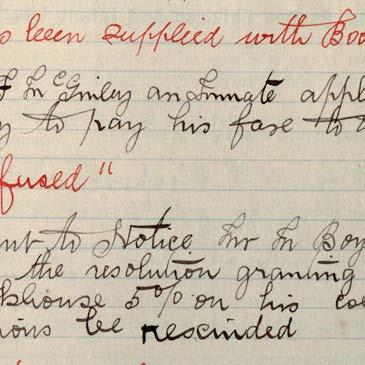 s been supplied with Boo
F McGinley an Inmate appl
y to pay his fare to
fused"
nt to Notice Mr M Boy
the resolution granting
khouse 5% on his co
ions be rescinded